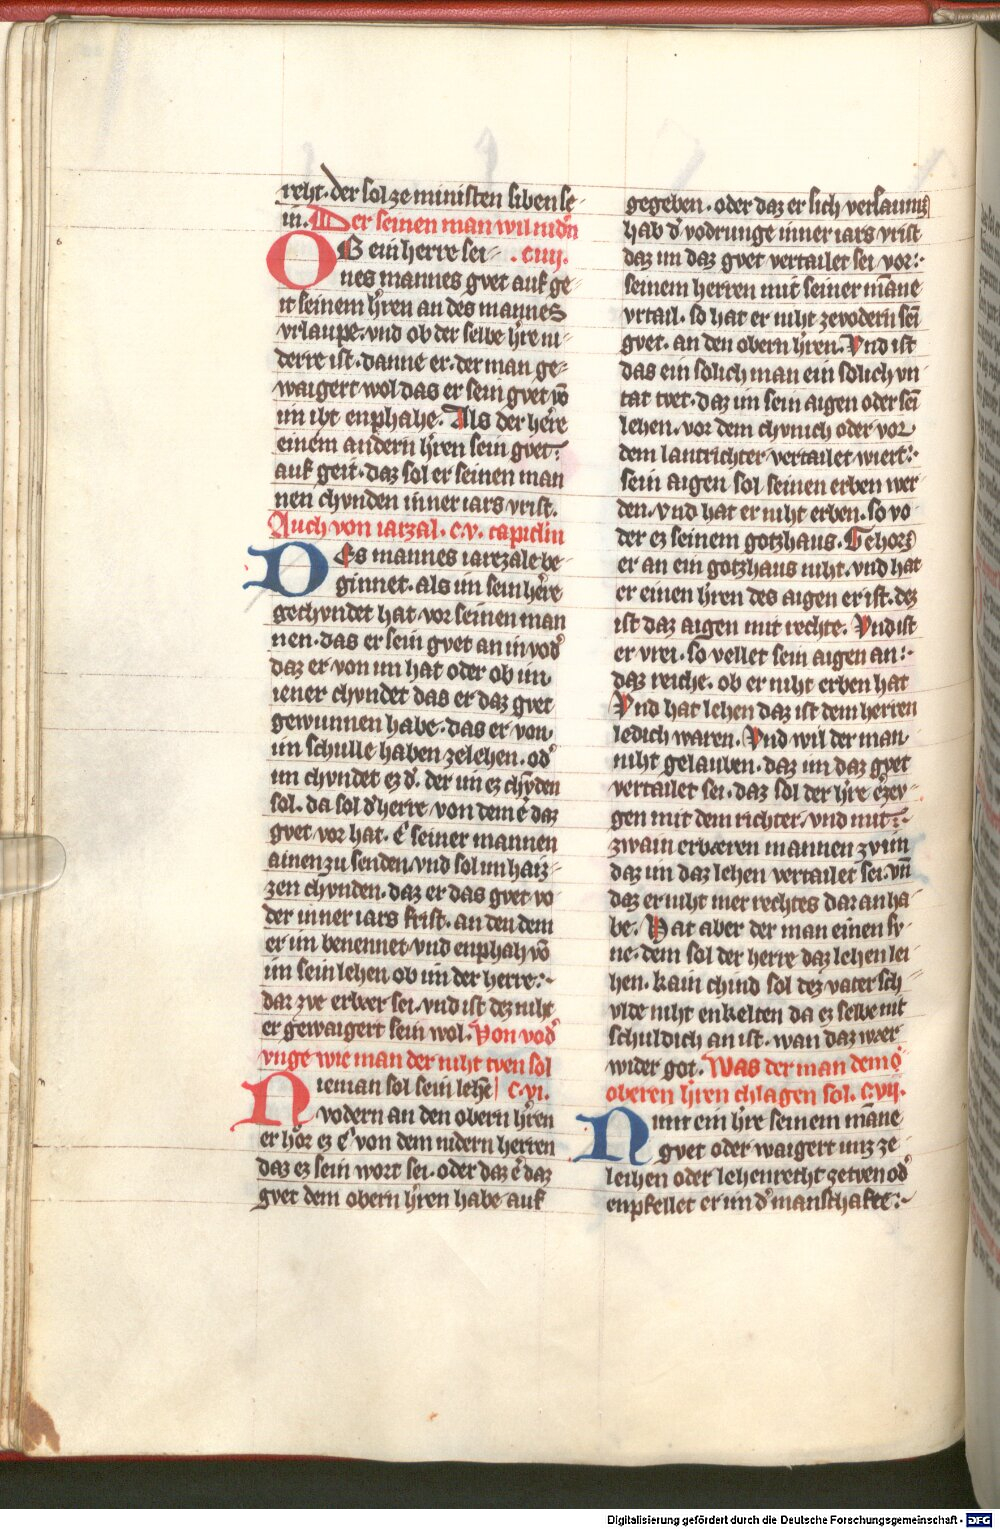 reht. der sol ze ministen siben se-
in. Der seinen man wil nidn̄
OB ein herre sei- .c.iiij.
nes mannes gvet auf ge-
it seinem hͤren an des mannes
vrlaupe. vnd ob der selbe hͤre ni-
derre ist. danne er. der man ge-
waigert wol das er sein gvet vō
im iht enphahe. Als der heͤre
einem andern hͤren sein gvet:
auf geit. daz sol er seinen man
nen chvnden inner iars vrist.
Auch von iarzal. c.v. capitlin
Des mannes iarzale be-
ginnet. als im sein heͤre
gechvndet hat. vor seinen man
nen. das er sein gvet an in vod᾽
daz er von im hat oder ob im
iener chvndet das er daz gvet
gewunnen habe. das er von
im schulle haben ze lehen. od᾽
im chvndet ez d᾽. der im ez chvden
sol. da sol d᾽ herre von dem e᾽ daz
gvet vor hat. e᾽ seiner mannen
ainen zu senden. vnd sol im haiz-
zen chvnden. daz er das gvet vo
der inner iars frist. an den dem
er im benennet vnd enphah vō
im sein lehen ob im der herre:
dar zve erbær sei. vnd ist dez niht
er gewaigert sein wol. Von vod᾽
vnge wie man der niht tven sol
Nieman sol sein lehē c.vi.
vodern an den obern hͤren
er hor ez e᾽ von dem nidern herren
daz ez sein wort sei. oder daz e᾽ daz
gvet dem obern hͤren habe auf
gegeben. oder daz er sich versaumz
hab d᾽ vodrunge inner iars vrist
daz im daz gvet vertailet sei vor:
seinem herren mit seiner māne
vrtail. so hat er niht ze vodern sei
gvet. an den obern hͤren. Vnd ist
das ein solich man ein solich vn
tat tvet. daz im sein aigen oder sei
lehen. vor dem chvnich oder vor
dem lantrichter vertailet wiert:
sein aigen sol seinen erben wer
den. vnd hat er niht erben. so vo
der ez seinem gotzhaus. Gehorz
er an ein gotzhaus niht. vnd hat
er einen hͤren des aigen er ist. dez
ist daz aigen mit rechte. Vnd ist
er vrei. so vellet sein aigen an:
daz reiche. ob er niht erben hat
Vnd hat lehen daz ist dem herren
ledich waren. Vnd wil der man
niht gelauben. daz im daz gvet
vertailet sei. daz sol der hͤre erzev-
gen mit dem richter. vnd mit:
zwain erbæren mannen zv im
daz im daz lehen vertailet sei. vn̄
daz er niht mer rechtes dar an ha
be. Hat aber der man einen sv
ne. dem sol der herre daz lehen lei
hen. kain chind sol dez vater sch
vlde niht enkelten da ez selbe nit
schuldich an ist. wan daz wær
wider got. Was der man dem o
oberen hͤren chlagen sol. c.vij.
Nimt ein hͤre seinem māne
gvet oder waigert imz ze
leihen oder lehenrecht ze tven od᾽
enpfellet er im d᾽ manschafte:
Digitalisierung gefördert durch die Deutsche Forschungsgemeinschaft - DFG